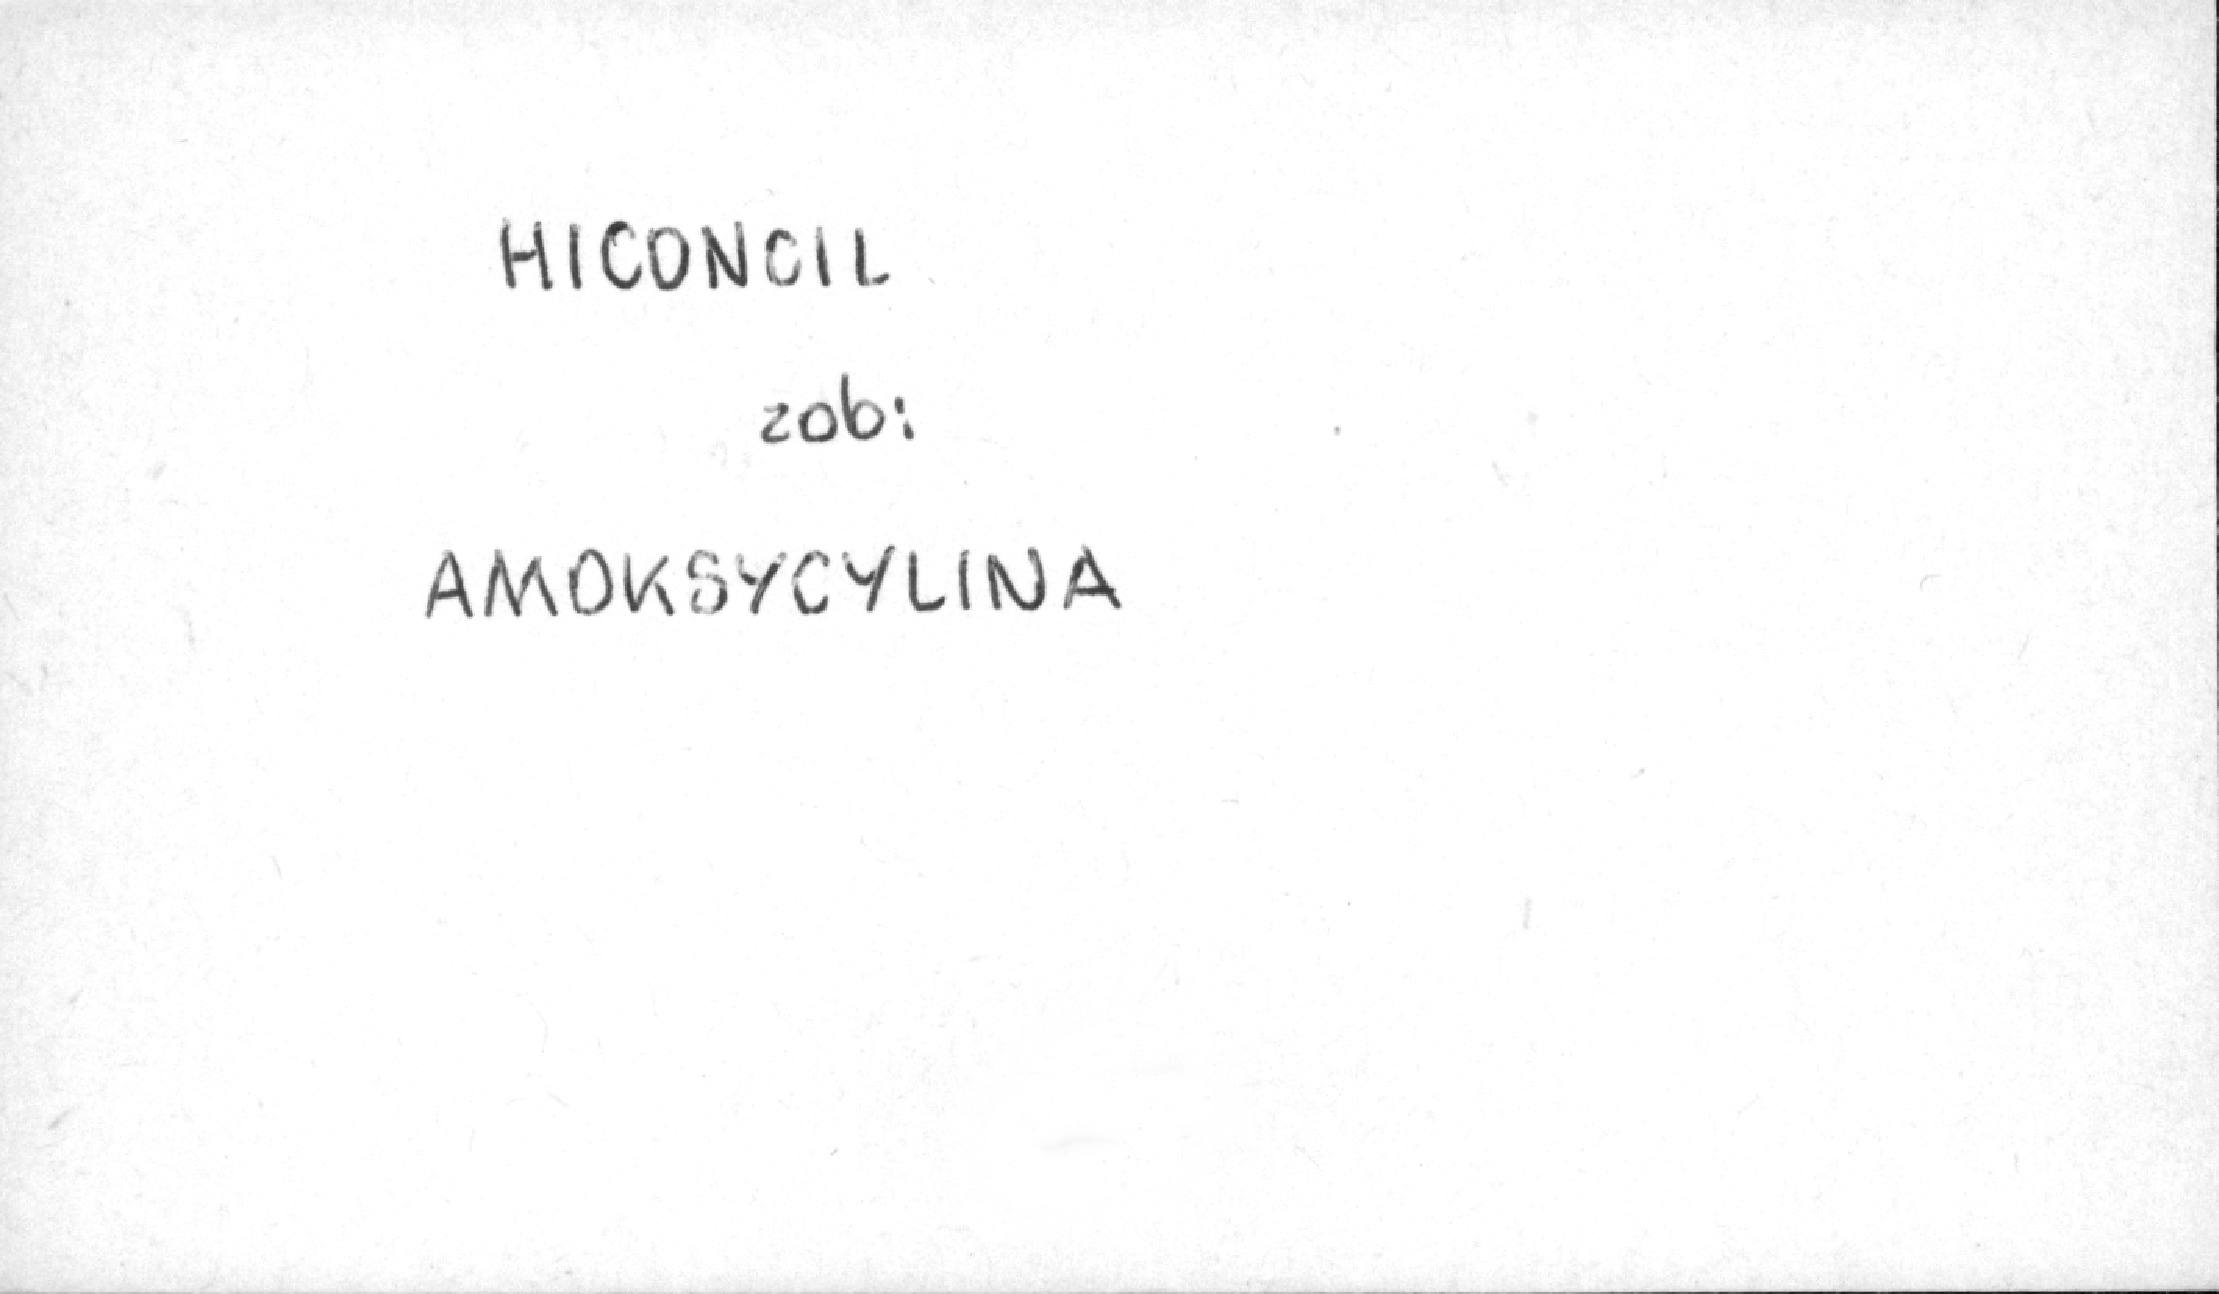 HICONCIL
zob:
AMOKSYCYLINA